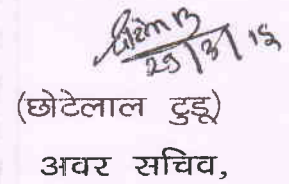 29/3/15
(छोटेलाल टुडू)
अवर सचिव,